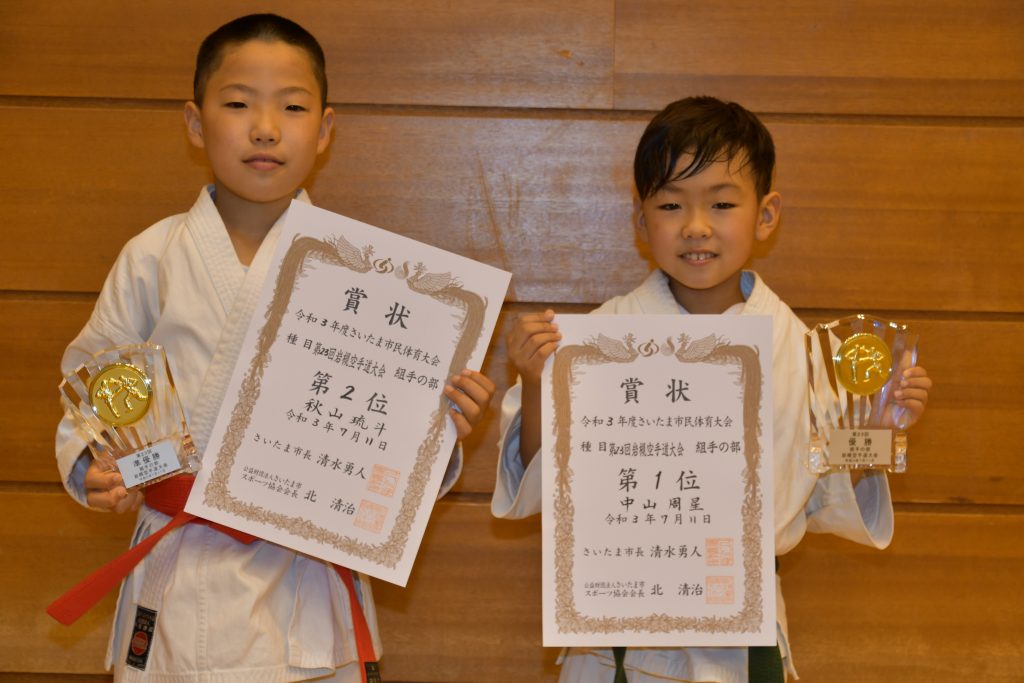 賞状
令和3年度さいたま市民体育大会
種目第23回岩槻空手道大会 組手の部
第2位
秋山琉斗
令和3年7月11日
さいたま市長 清水勇人
公益財団法人さいたま市
スポーツ協会会長 北 清治
第23回
準優勝
組手の部
岩槻空手道大会
賞状
令和3年度さいたま市民体育大会
種目第23回岩槻空手道大会 組手の部
第1位
中山周星
令和3年7月11日
さいたま市長 清水勇人
公益財団法人さいたま市
スポーツ協会会長 北 清治
第23回
優勝
組手の部
岩槻空手道大会